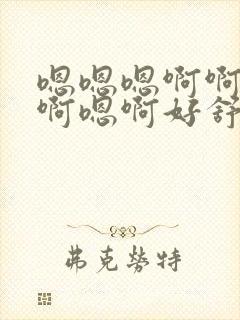 嗯嗯嗯啊啊
啊嗯啊好舒
弗克劳特